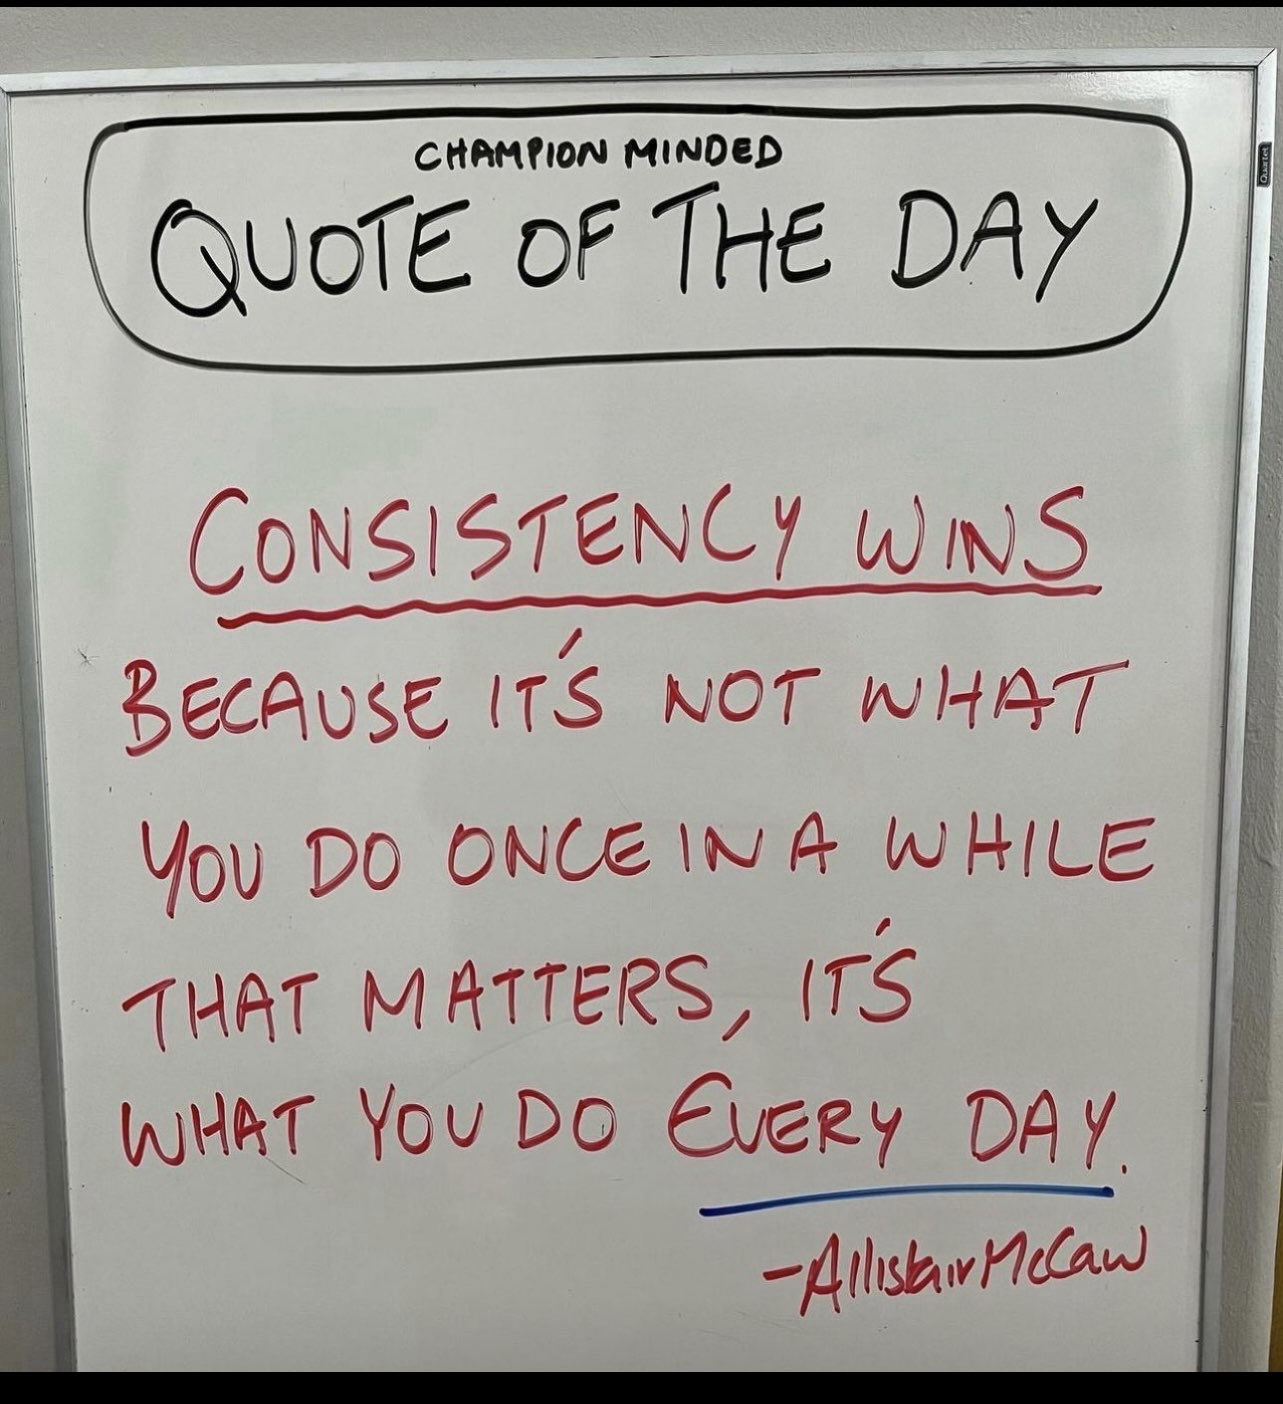 CHAMPION MINDED
QUOTE OF THE DAY
Quartet
CONSISTENCY WINS
BECAUSE IT'S NOT WHAT
YOU DO ONCE IN A WHILE
THAT MATTERS, IT'S
WHAT YOU DO EVERY DAY.
-Allistair McCaw